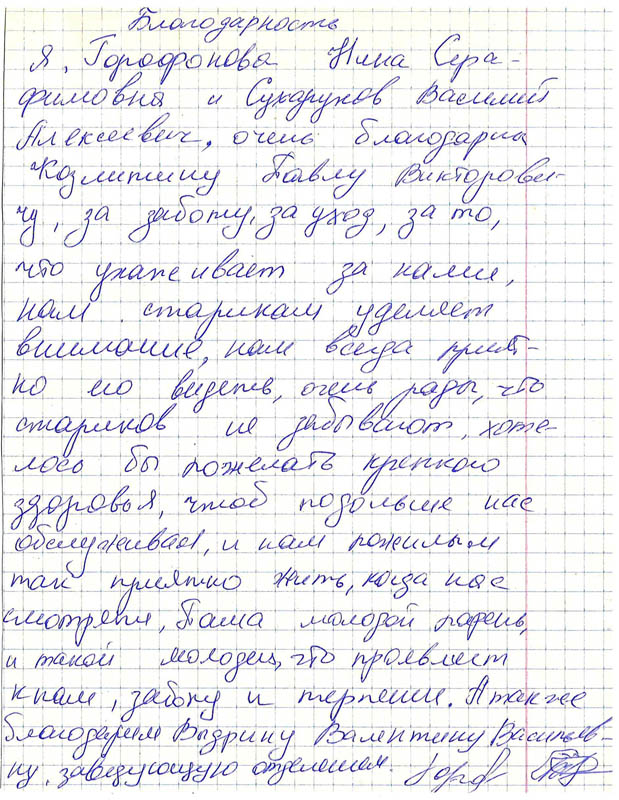 Благодарность
Я, Горофонова Нина Сера-
фимовна и Сухоруков Василий
Алексеевич, очень благодарны
Козлитину Павлу Викторови-
чу, за заботу, за уход, за то,
что ухаживает за нами,
нам старикам уделяет
внимание, нам всегда прият-
но его видеть, очень рады, что
стариков не забывают, хоте-
лось бы пожелать крепкого
здоровья, чтоб подольше нас
обслуживал, и нам пожилым
так приятно жить, когда нас
смотрят, Паша молодой парень,
и такой молодец, что проявляет
к нам, заботу и терпение. А также
благодарим Выдрину Валентину Васильев-
ну, заведующую отделением.